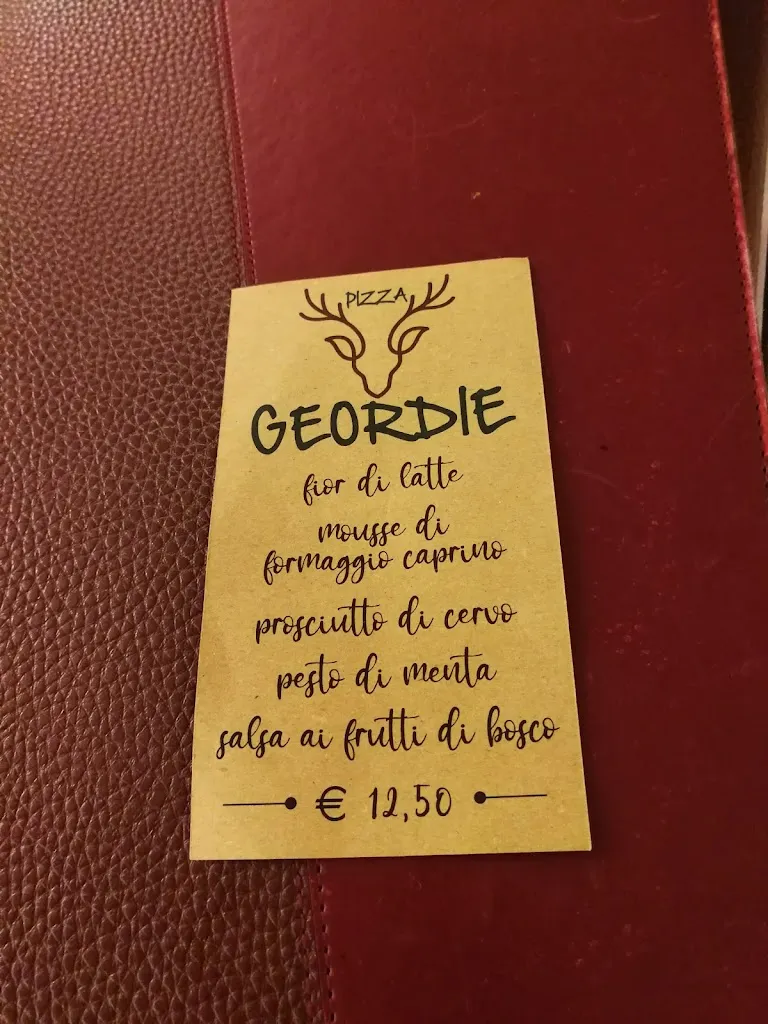 PIZZA
GEORDIE
fior di latte
mousse di
formaggio caprino
prosciutto di cervo
pesto di menta
salsa ai frutti di bosco
€ 12,50